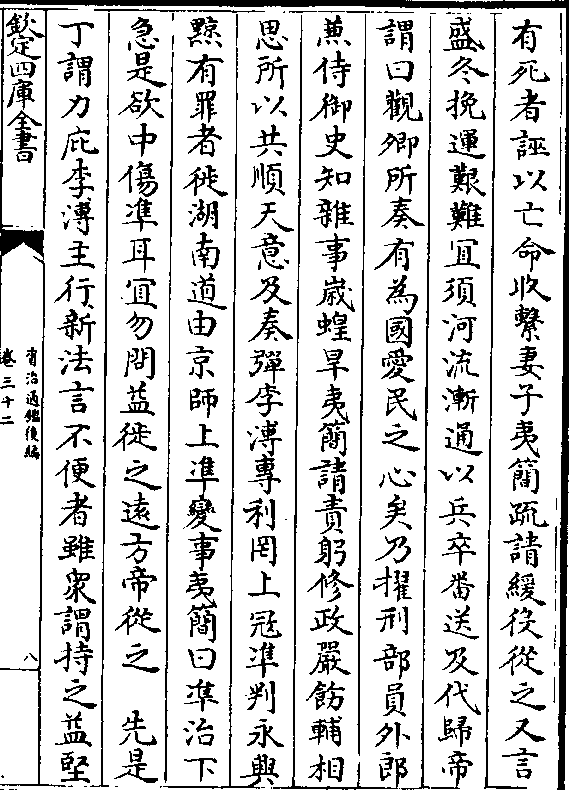 有死者誣以亡命收繫妻子夷簡疏請緩役從之又言
盛冬挽運艱難宜須河流漸通以兵卒番送及代歸帝
謂曰觀卿所奏有為國愛民之心矣乃擢刑部員外郎
兼侍御史知雜事歲蝗旱夷簡請責躬修政嚴飭輔相
思所以共順天意及奏彈李溥專利罔上冦準判永興
黥有罪者徙湖南道由京師上準變事夷簡曰準治下
急是欲中傷準耳宜勿問益徙之遠方帝從之　先是
丁謂力庇李溥主行新法言不便者雖衆謂持之益堅
欽定四庫全書
資治通鑑後編
卷三十二
八